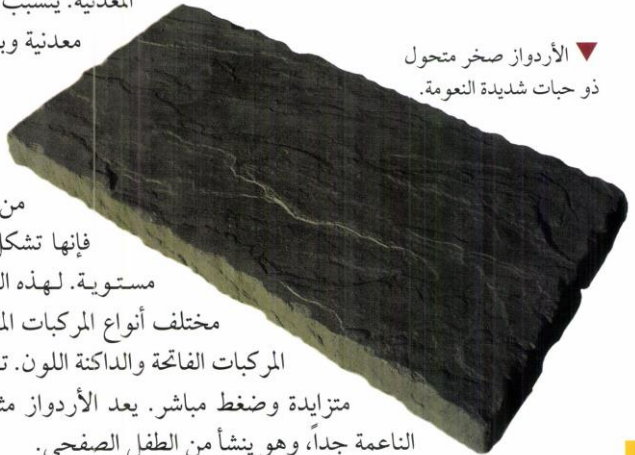 المعدنية. يتسبب
معدنية وب
▼ الأردواز صخر متحول
ذو حبات شديدة النعومة.
من
فإنها تشكل
مستوية. لهذه ال
مختلف أنواع المركبات الم
المركبات الفاتحة والداكنة اللون. ت
متزايدة وضغط مباشر. يعد الأردواز مث
الناعمة جداً، وهو ينشأ من الطفل الصفحي.